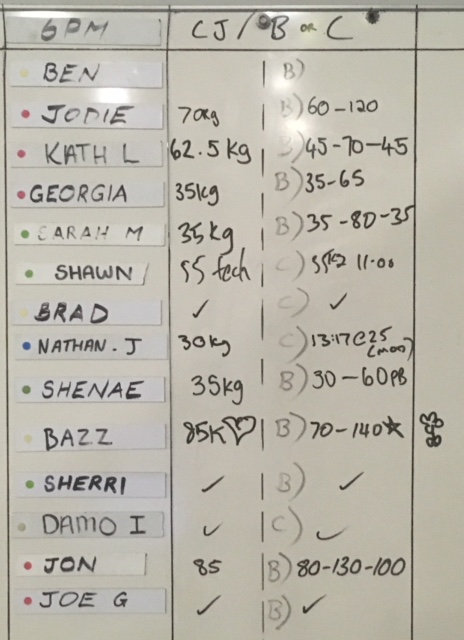 6PM CJ/ B OR C
BEN B)
JODIE 70kg B) 60-120
KATH L 62.5kg B) 45-70-45
GEORGIA 35kg B) 35-65
SARAH M 35kg B) 35-80-35
SHAWN 55 tech C) 11:00
BRAD ✓ C) ✓
NATHAN.J 30kg C) 13:17@25
(mod)
SHENAE 35kg B) 30-60PB
BAZZ 85K♡ B) 70-140★
SHERRI ✓ B) ✓
DAMO I ✓ C) ✓
JON 85 B) 80-130-100
JOE G ✓ B) ✓